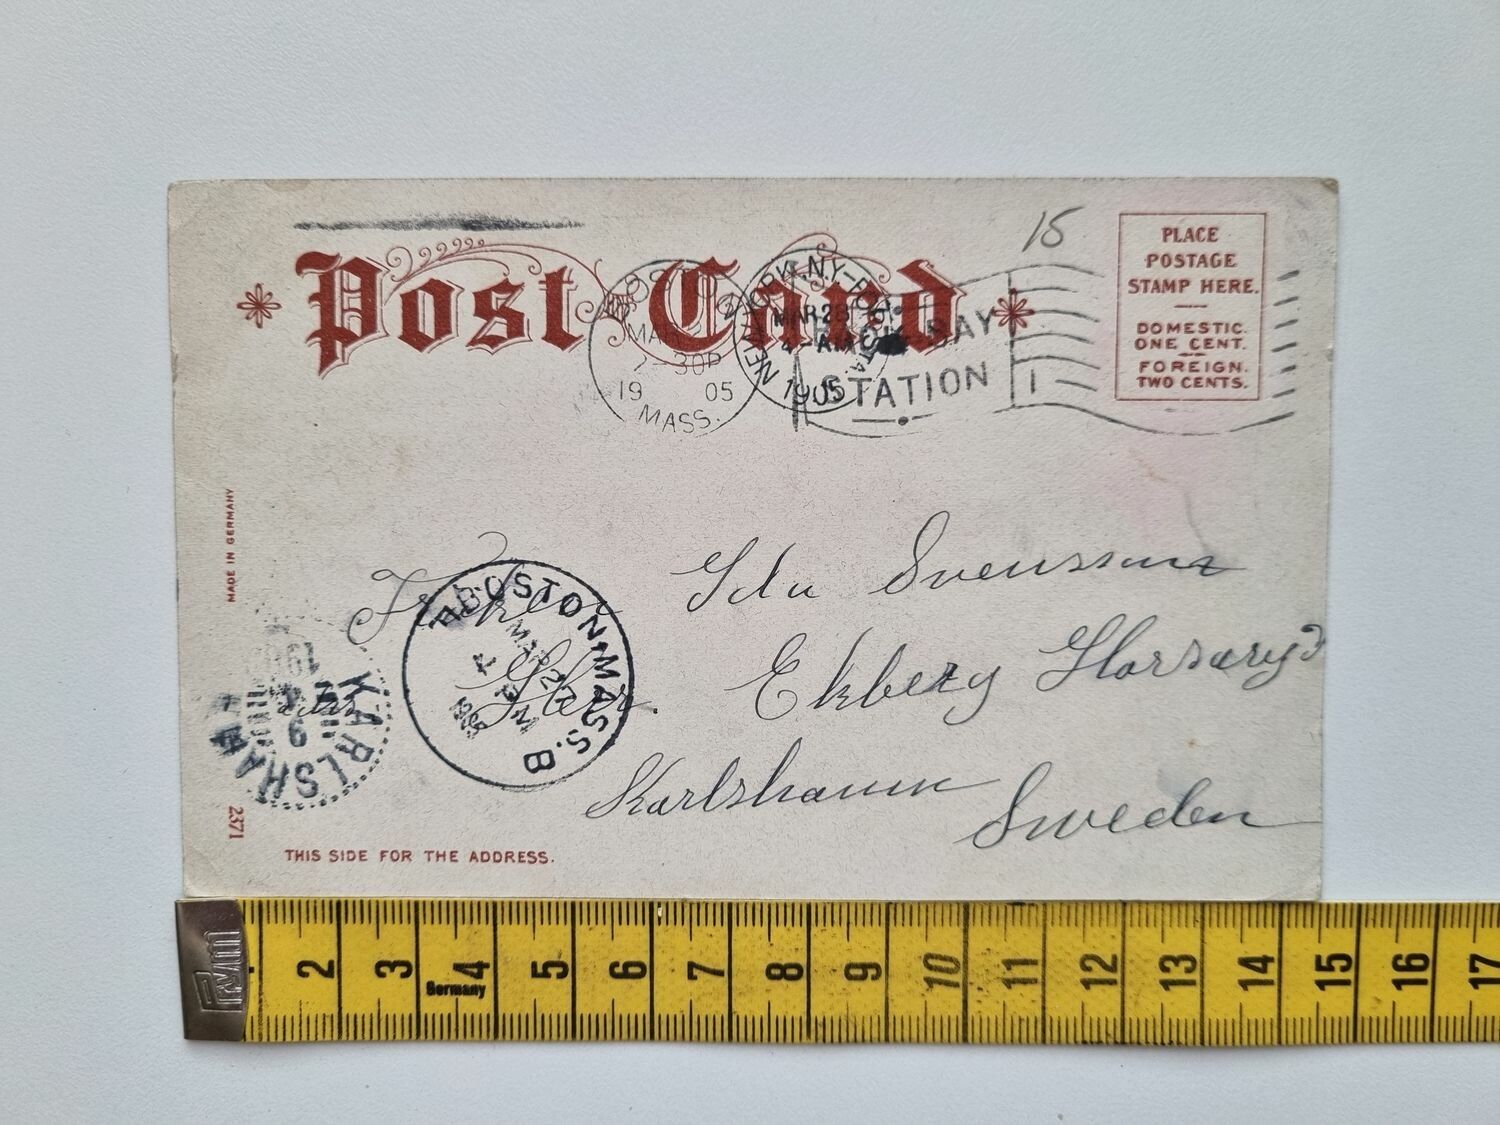 15
Post Card
PLACE
POSTAGE
STAMP HERE.
DOMESTIC.
ONE CENT.
FOREIGN.
TWO CENTS.
BOSTON
MAR
7-30P
19 05
MASS.
NEW YORK, N.Y.-
MAR 28
4-AM
1905
BACK BAY
STATION
1
MADE IN GERMANY
Fröken Ida Svensson
Ekberg
Karlshamn
Sweden
BOSTON, MASS. B
MAR 27
KARLSHAMN
9
2371
THIS SIDE FOR THE ADDRESS.
PYM
2 3 4 5 6 7 8 9 10 11 12 13 14 15 16 17
Germany